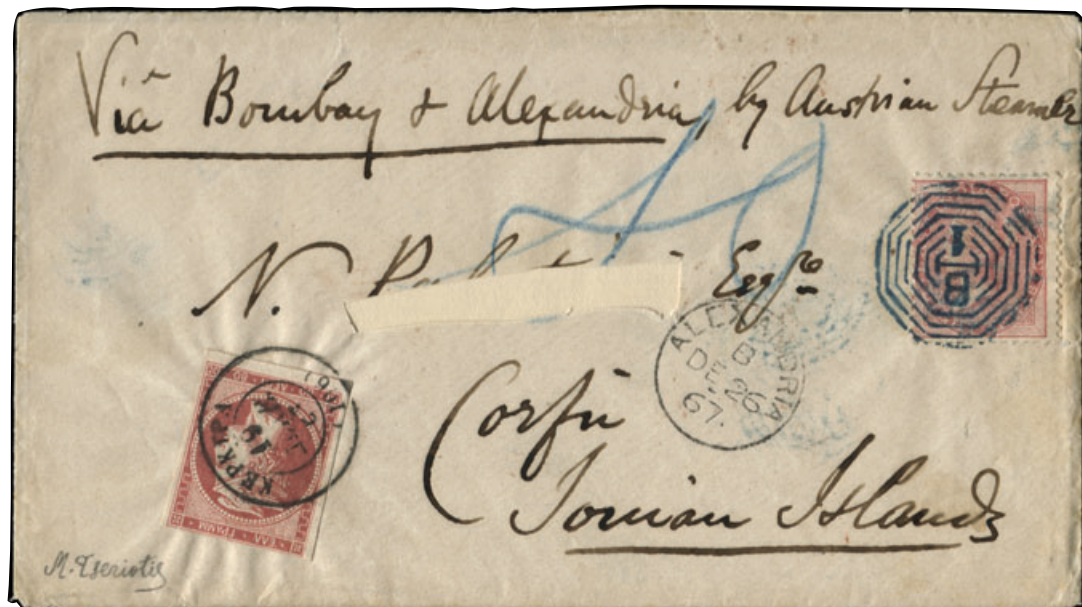 Via Bombay & Alexandria, by Austrian Steamer
N. Esqre
Corfu
Ionian Islands
ALEXANDRIA
B
DE 26
67
B
1
ΚΕΡΚΥΡΑ
(107)
19
ΕΛΛ. ΓΡΑΜΜ
M. Tseriotis